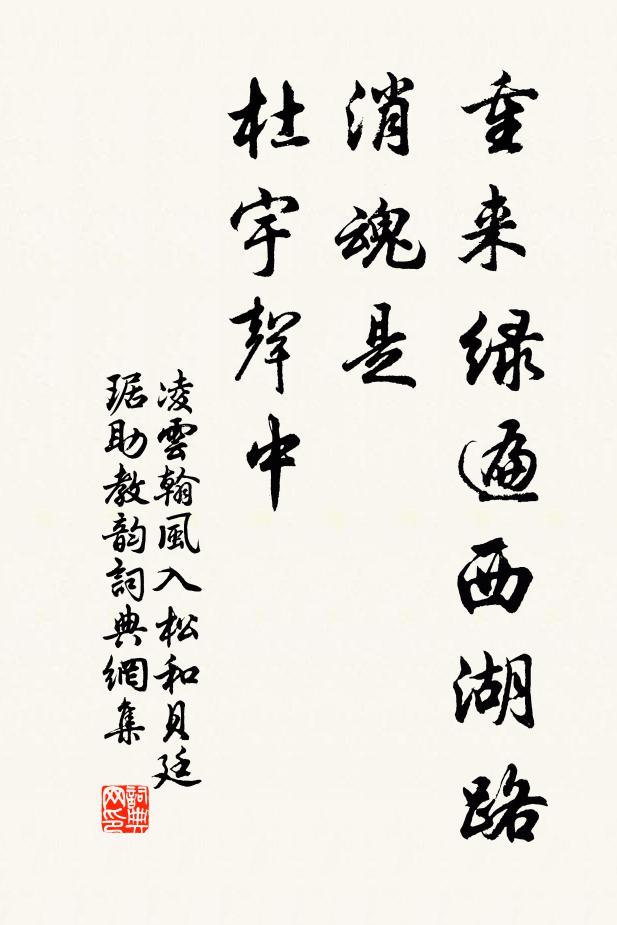 重来绿遍西湖路
消魂是
杜宇聲中
凌雲翰風入松和貝廷
琚助教韵詞典網集
詞典
网印